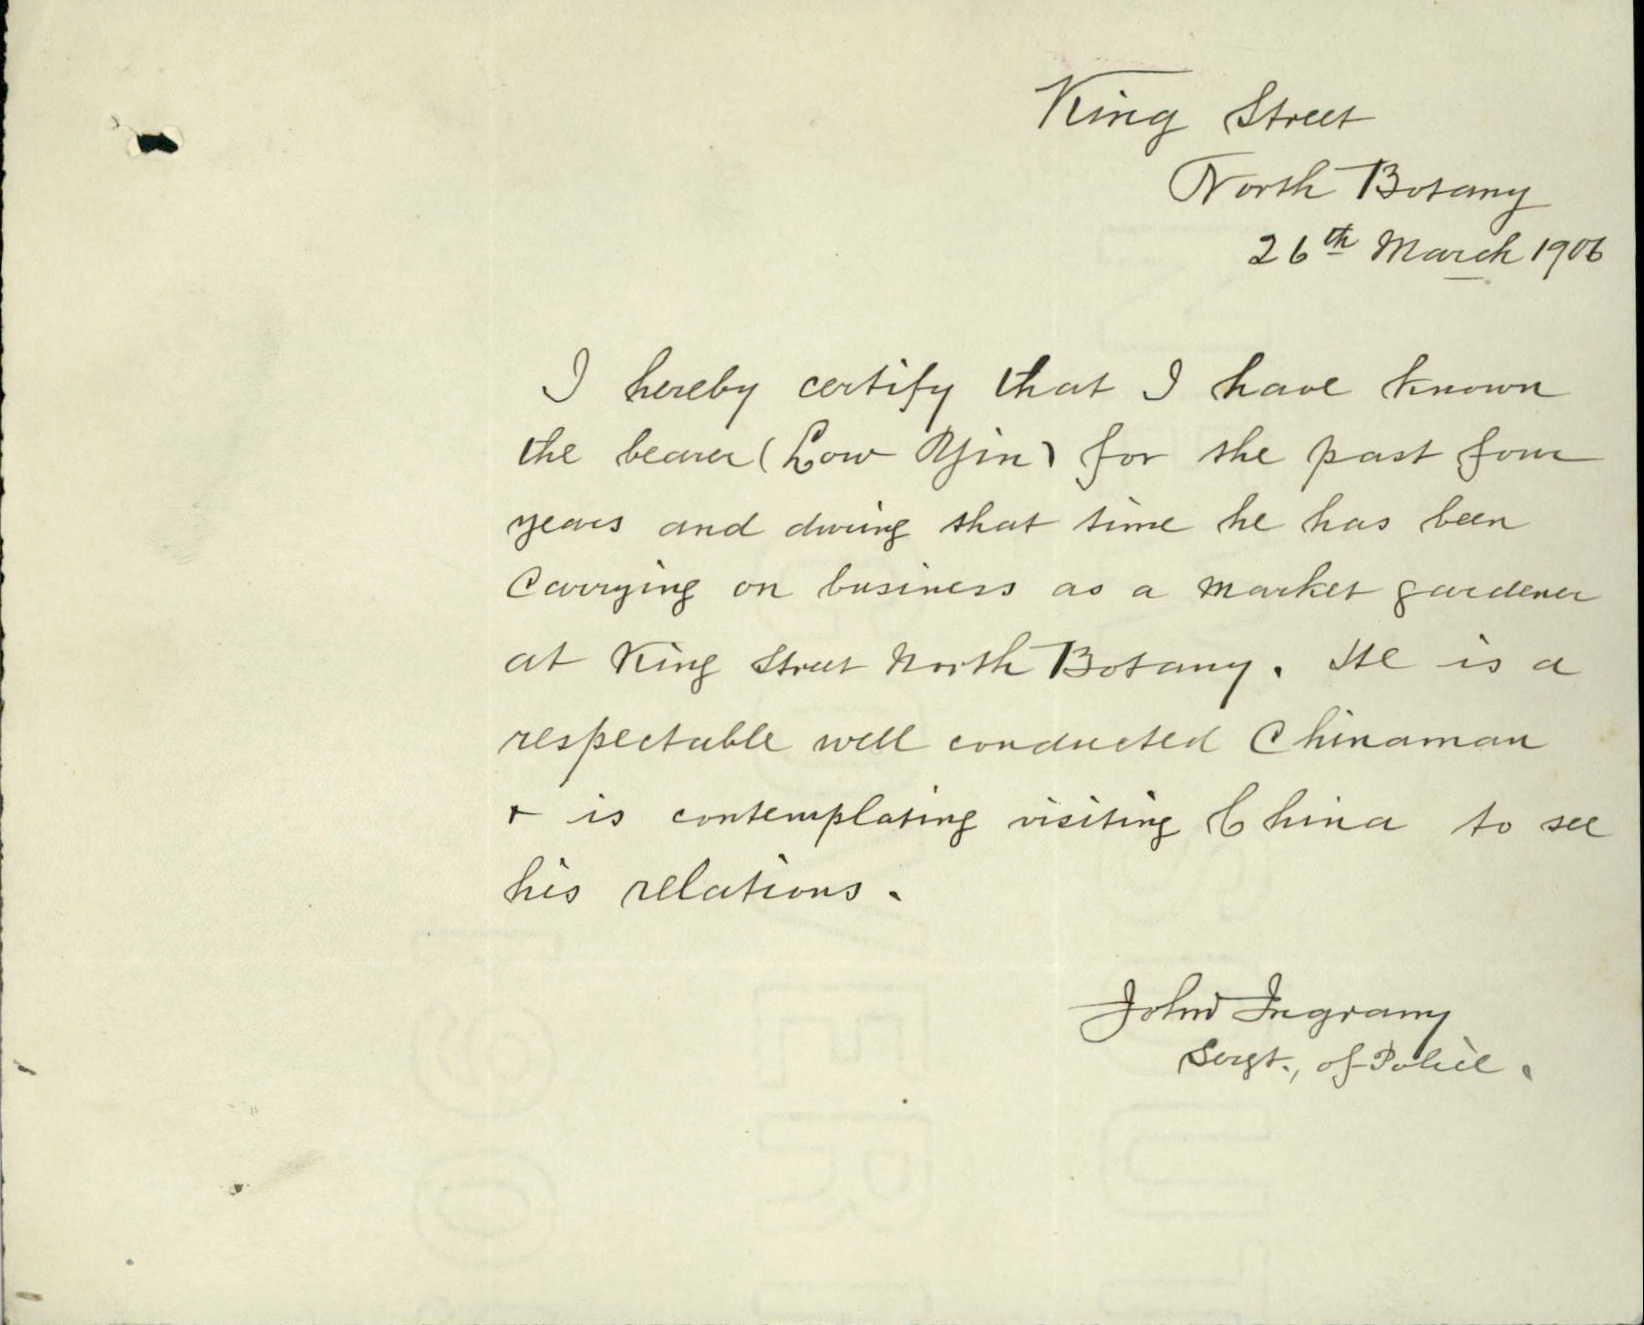 King Street
North Botany
26th March 1906
I hereby certify that I have known
the bearer (Low Yin) for the past four
years and during that time he has been
Carrying on business as a market gardener
at King Street North Botany. He is a
respectable well conducted Chinaman
+ is contemplating visiting China to see
his relations.
John Ingram
Sergt., of Police.